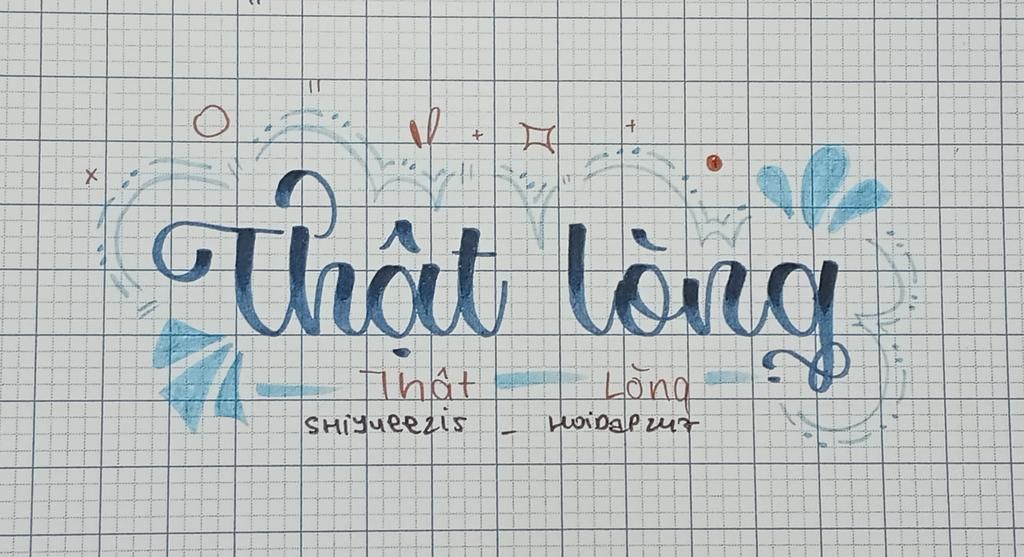 Thật lòng
Thật Lòng
SHiyueezis _ HoiDap247